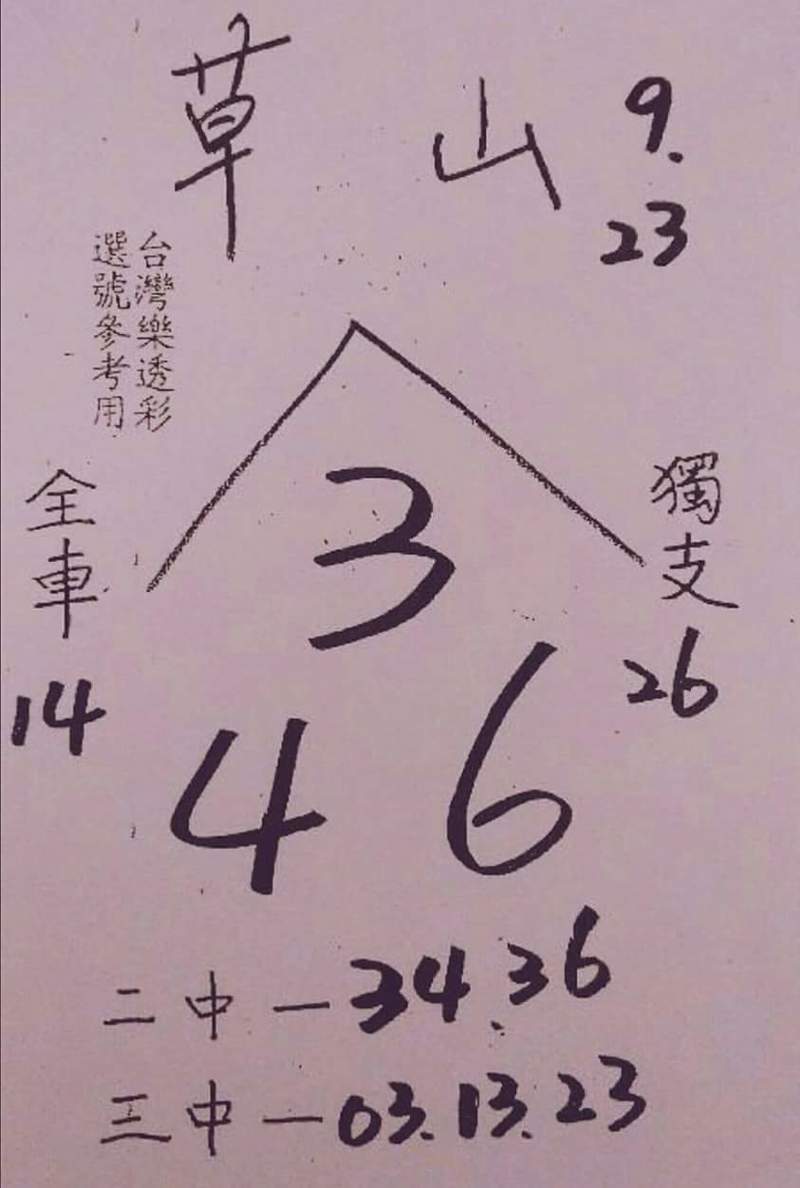 草山 9.
23
台灣樂透彩
選號參考用
全車
14
獨支
26
3
4 6
二中一34.36
三中一03.13.23